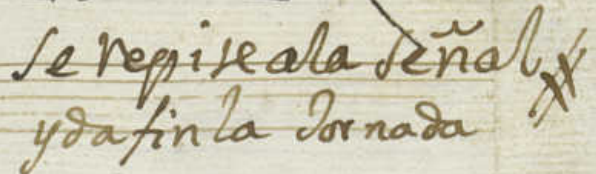 se repite a la señal
y da fin la Jornada